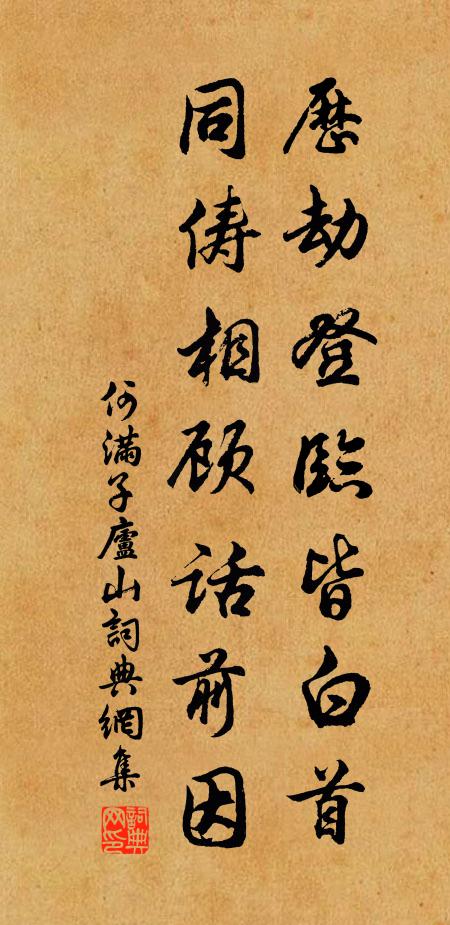 歷劫登臨皆白首
同儔相顧话前因
何滿子廬山詞典網集
詞典网印